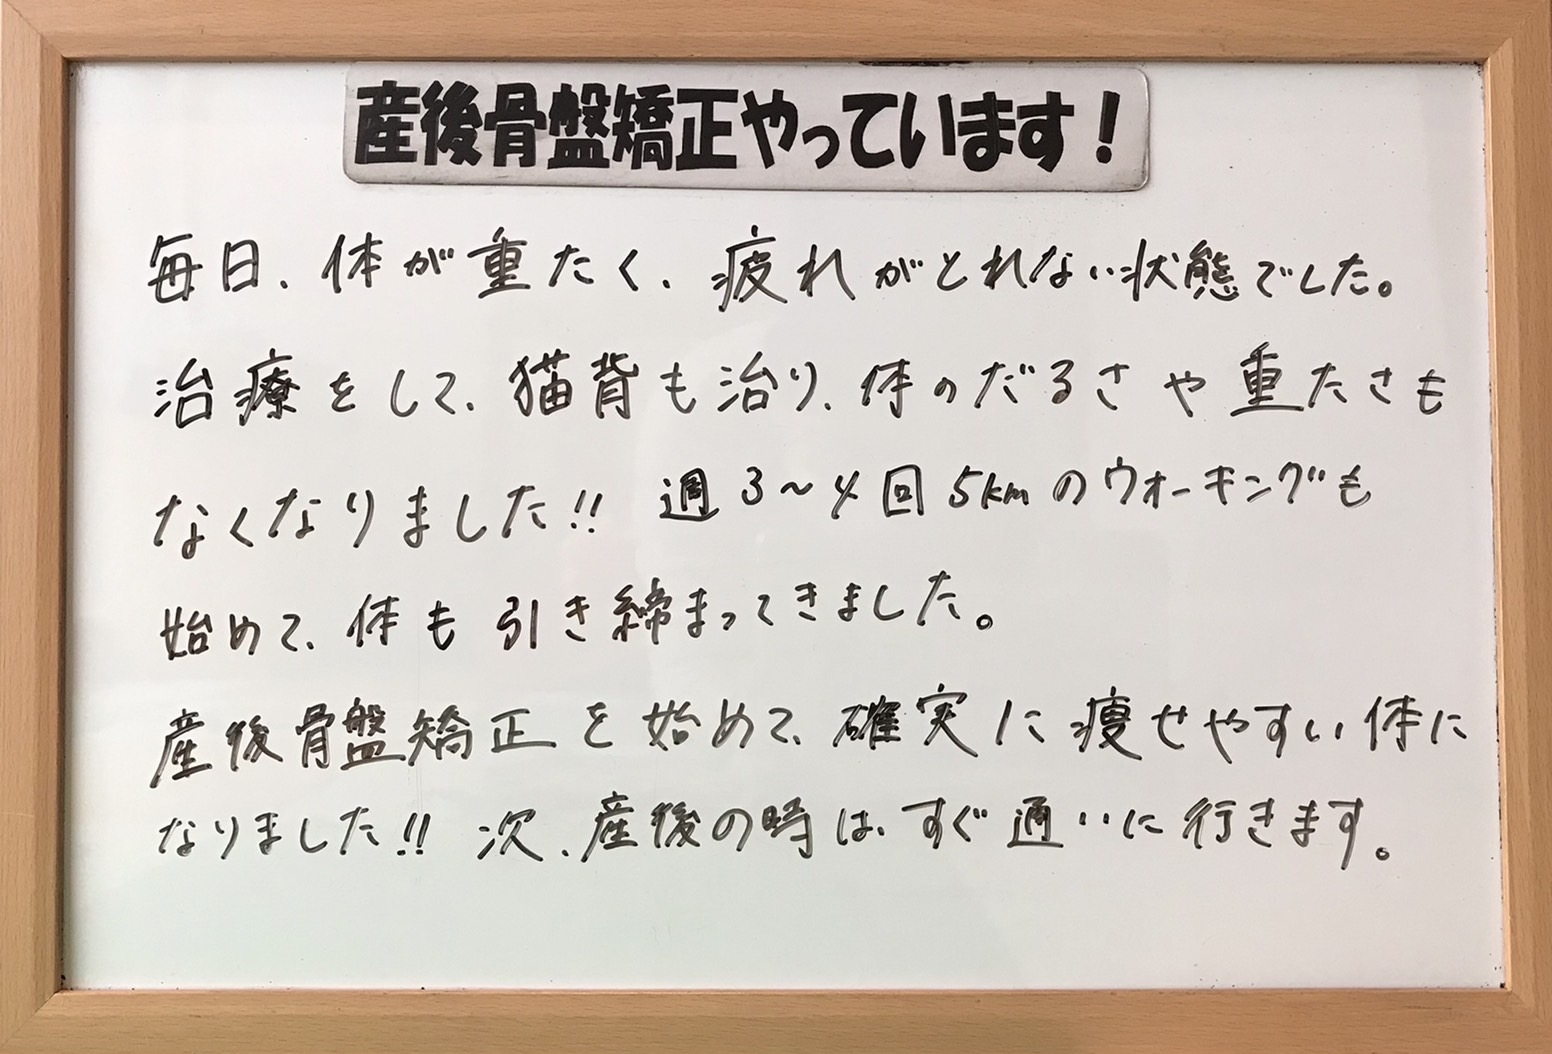 産後骨盤矯正やっています！
毎日、体が重たく、疲れがとれない状態でした。
治療をして、猫背も治り、体のだるさや重たさも
なくなりました!! 週3～4回5kmのウォーキングも
始めて、体も引き締まってきました。
産後骨盤矯正を始めて、確実に痩せやすい体に
なりました!! 次、産後の時は、すぐ通いに行きます。